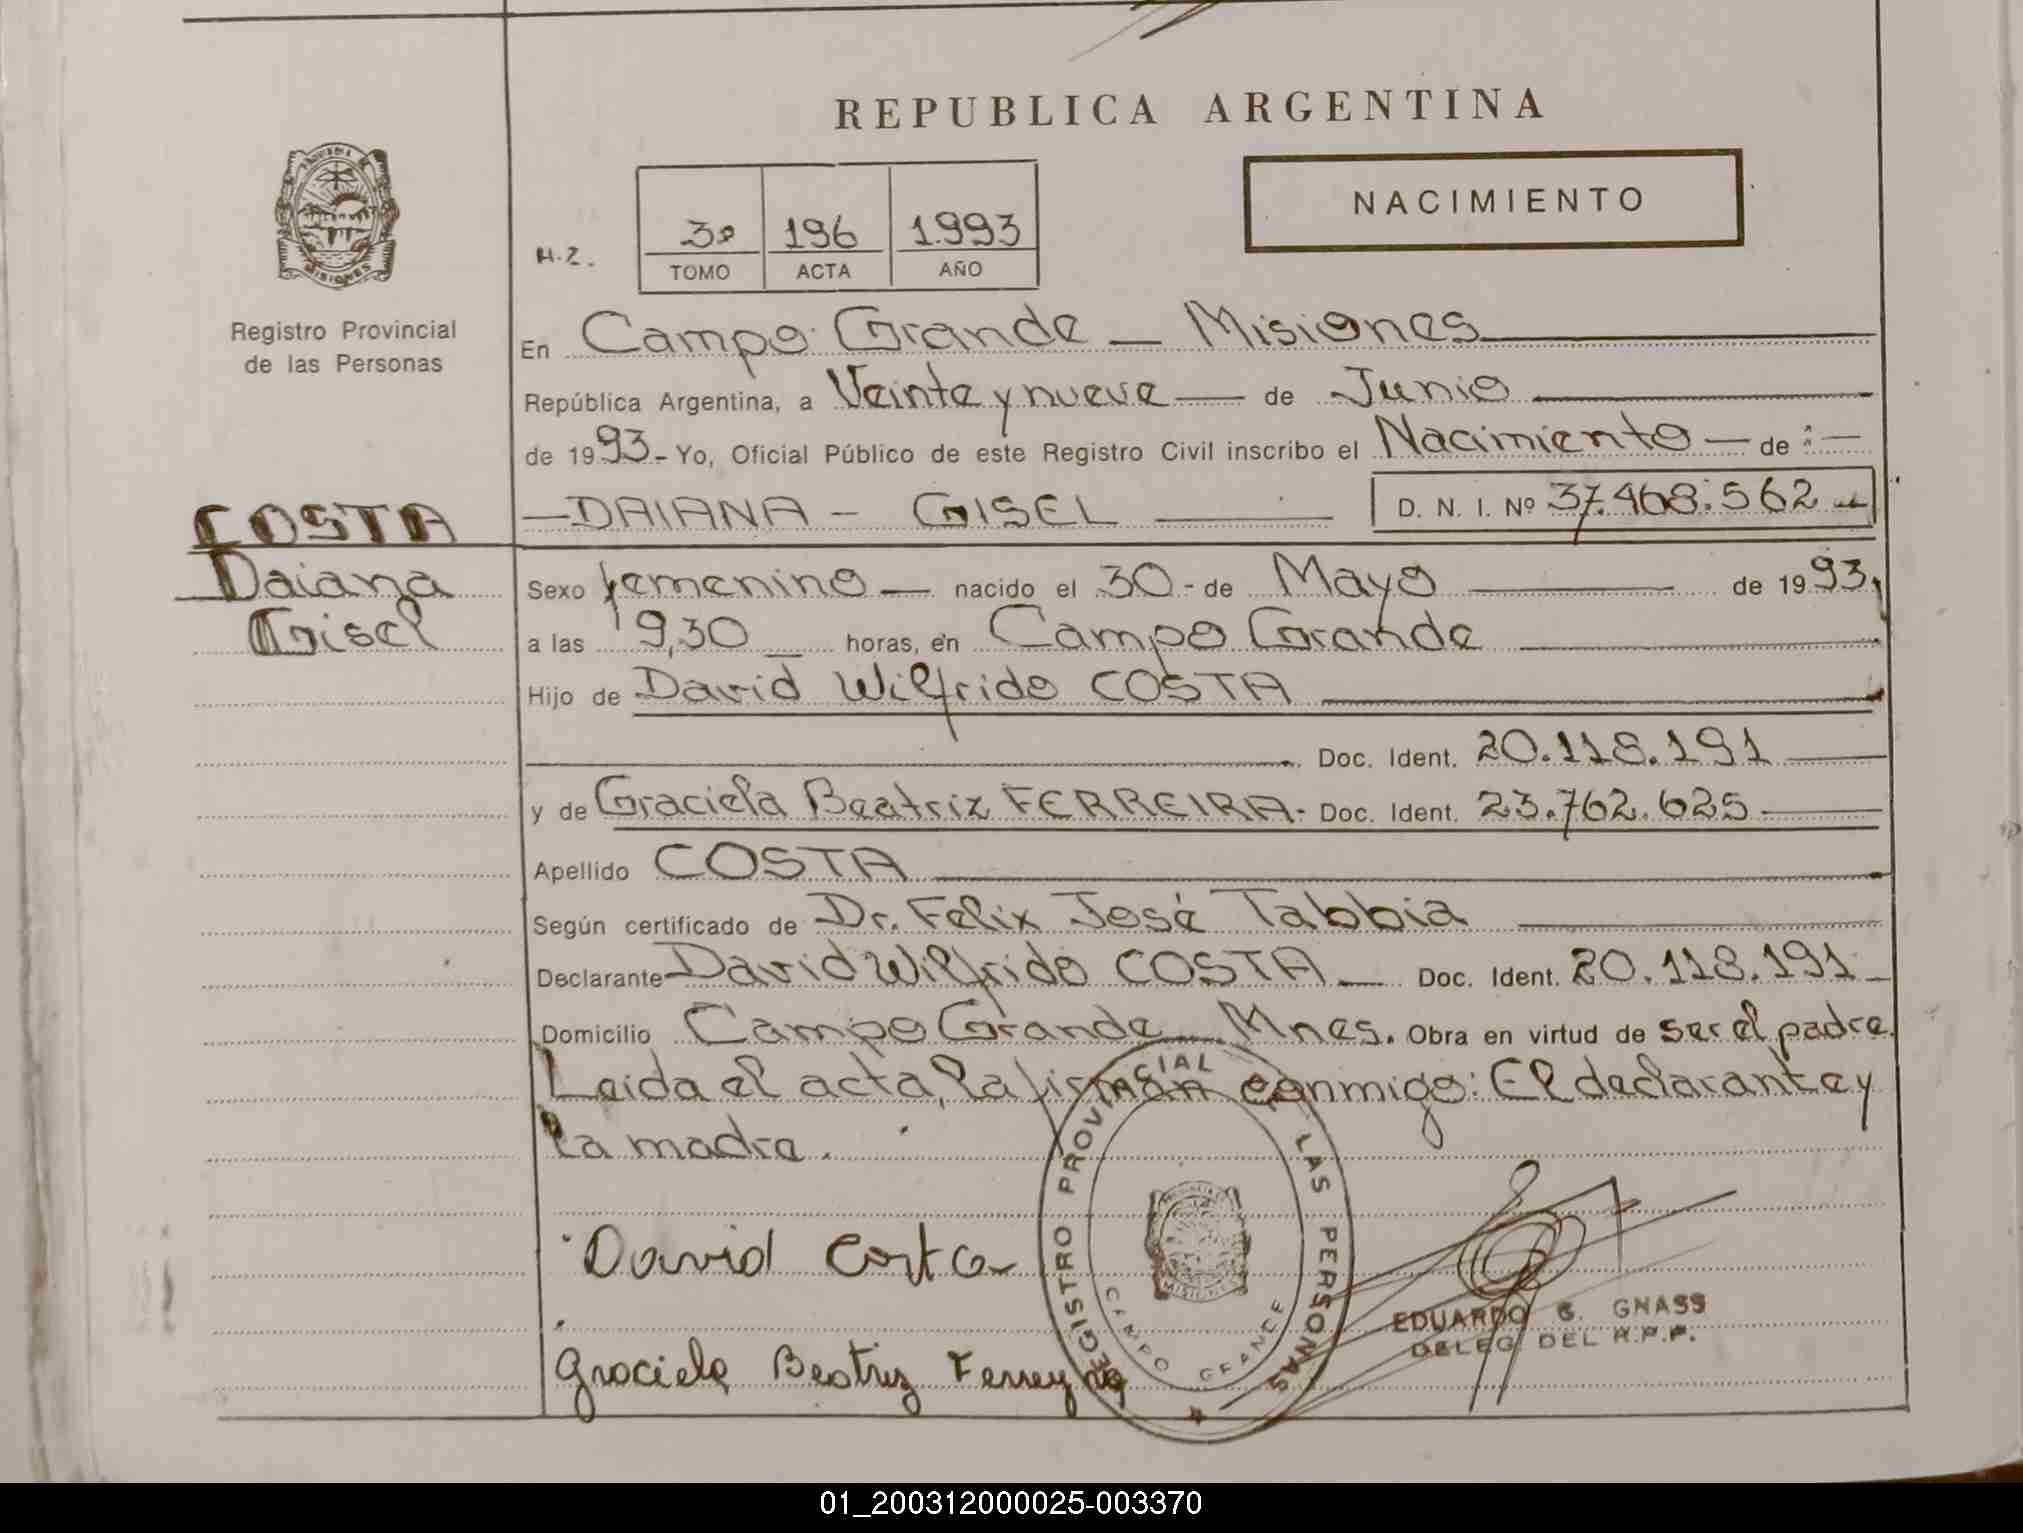 REPUBLICA ARGENTINA
NACIMIENTO
H.Z.
3º 196 1.993
TOMO ACTA AÑO
Registro Provincial
de las Personas
En Campo Grande — Misiones
República Argentina, a Veinte y nueve — de Junio
de 1993 - Yo, Oficial Público de este Registro Civil inscribo el Nacimiento — de :—
— DAIANA - GISEL — D. N. I. Nº 37.468.562
COSTA
Daiana
Gisel
Sexo femenino — nacido el 30 - de Mayo — de 1993,
a las 9,30 horas, en Campo Grande
Hijo de David Wilfrido COSTA
Doc. Ident. 20.118.191
y de Graciela Beatriz FERREIRA - Doc. Ident. 23.762.625
Apellido COSTA
Según certificado de Dr. Felix José Tabbia
Declarante David Wilfrido COSTA — Doc. Ident. 20.118.191
Domicilio Campo Grande Mnes. Obra en virtud de ser el padre.
Leida el acta, la firman conmigo: El declarante y
la madre.
David Costa
Graciela Beatriz Ferreyra
REGISTRO PROVINCIAL DE LAS PERSONAS
CAMPO GRANDE
MISIONES
EDUARDO G. GNASS
DELEG. DEL R.P.P.
01_200312000025-003370